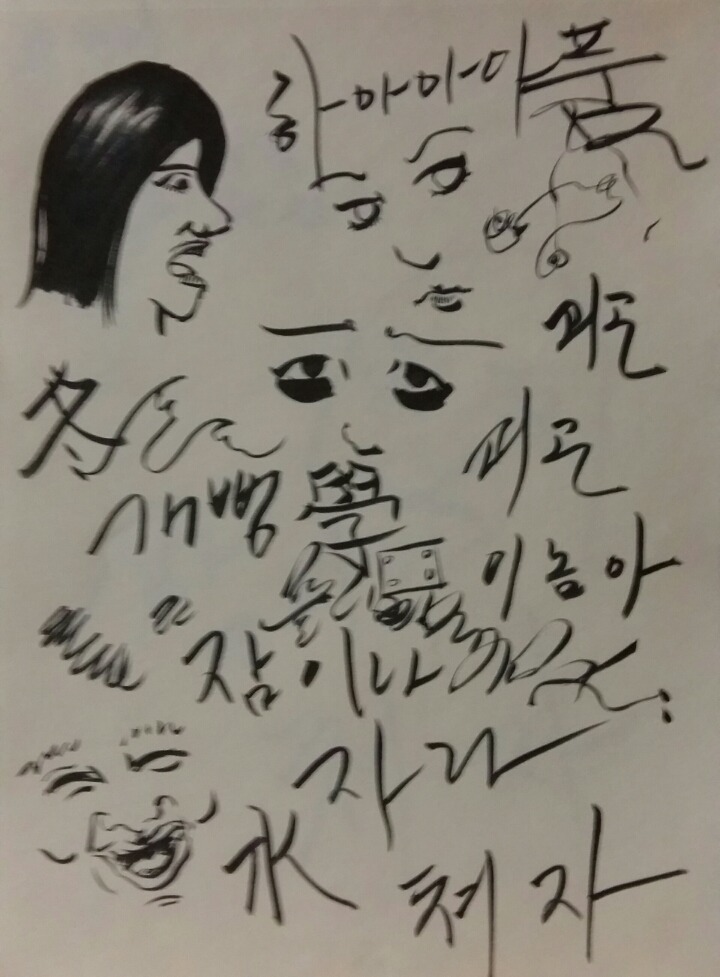 하아아아품
피곤
冬
피곤
개뻥學
이놈아
잠이나
자라
水
처자